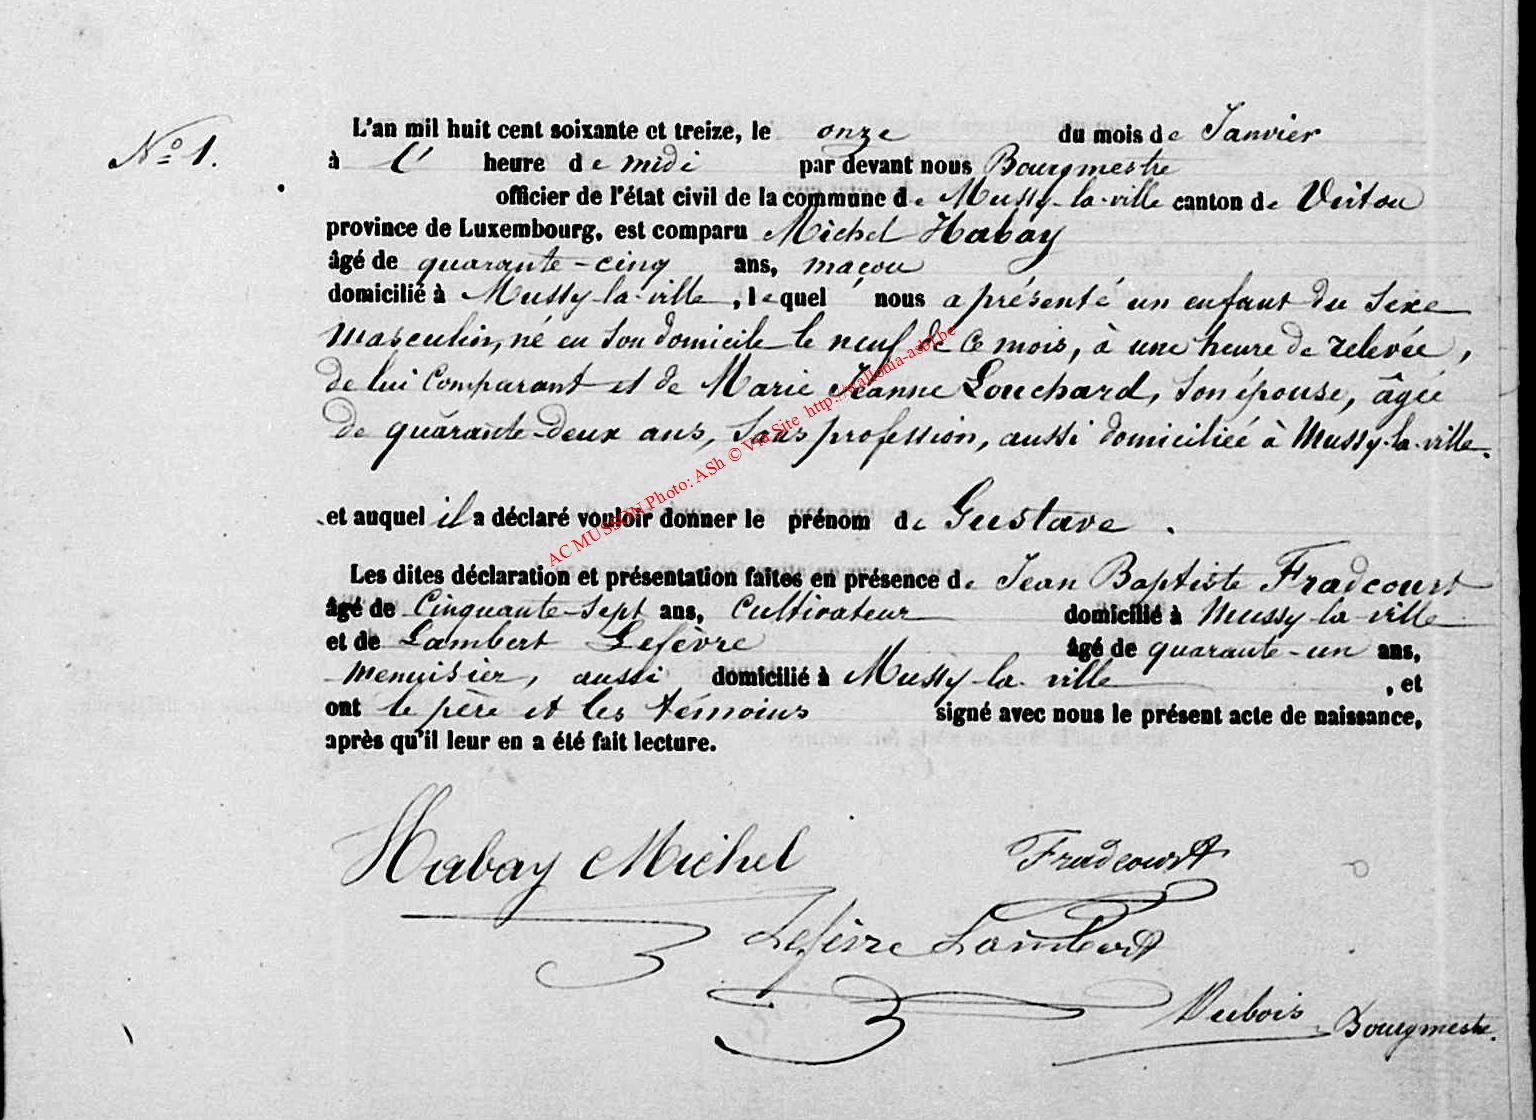 L'an mil huit cent soixante et treize, le onze du mois de Janvier
N° 1.
à l' heure de midi par devant nous Bourgmestre
officier de l'état civil de la commune de Mussy-la-ville canton de Virton
province de Luxembourg, est comparu Michel Habay
âgé de quarante-cinq ans, maçon
domicilié à Mussy-la-ville, lequel nous a présenté un enfant du sexe
masculin, né en son domicile le neuf de ce mois, à une heure de relevée,
de lui comparant et de Marie Jeanne Louchard, son épouse, âgée
de quarante-deux ans, sans profession, aussi domiciliée à Mussy-la-ville.
et auquel il a déclaré vouloir donner le prénom de Gustave.
AC MUSSON Photo: ASh © Via Site http://wallonia-asbl.be
Les dites déclaration et présentation faites en présence de Jean Baptiste Fradcourt
âgé de Cinquante-sept ans, Cultivateur domicilié à Mussy-la-ville
et de Lambert Lefèvre âgé de quarante-un ans,
menuisier, aussi domicilié à Mussy-la-ville, et
ont le père et les témoins signé avec nous le présent acte de naissance,
après qu'il leur en a été fait lecture.
Habay Michel Fradcourt
Lefèvre Lambert
Dubois Bourgmestre.